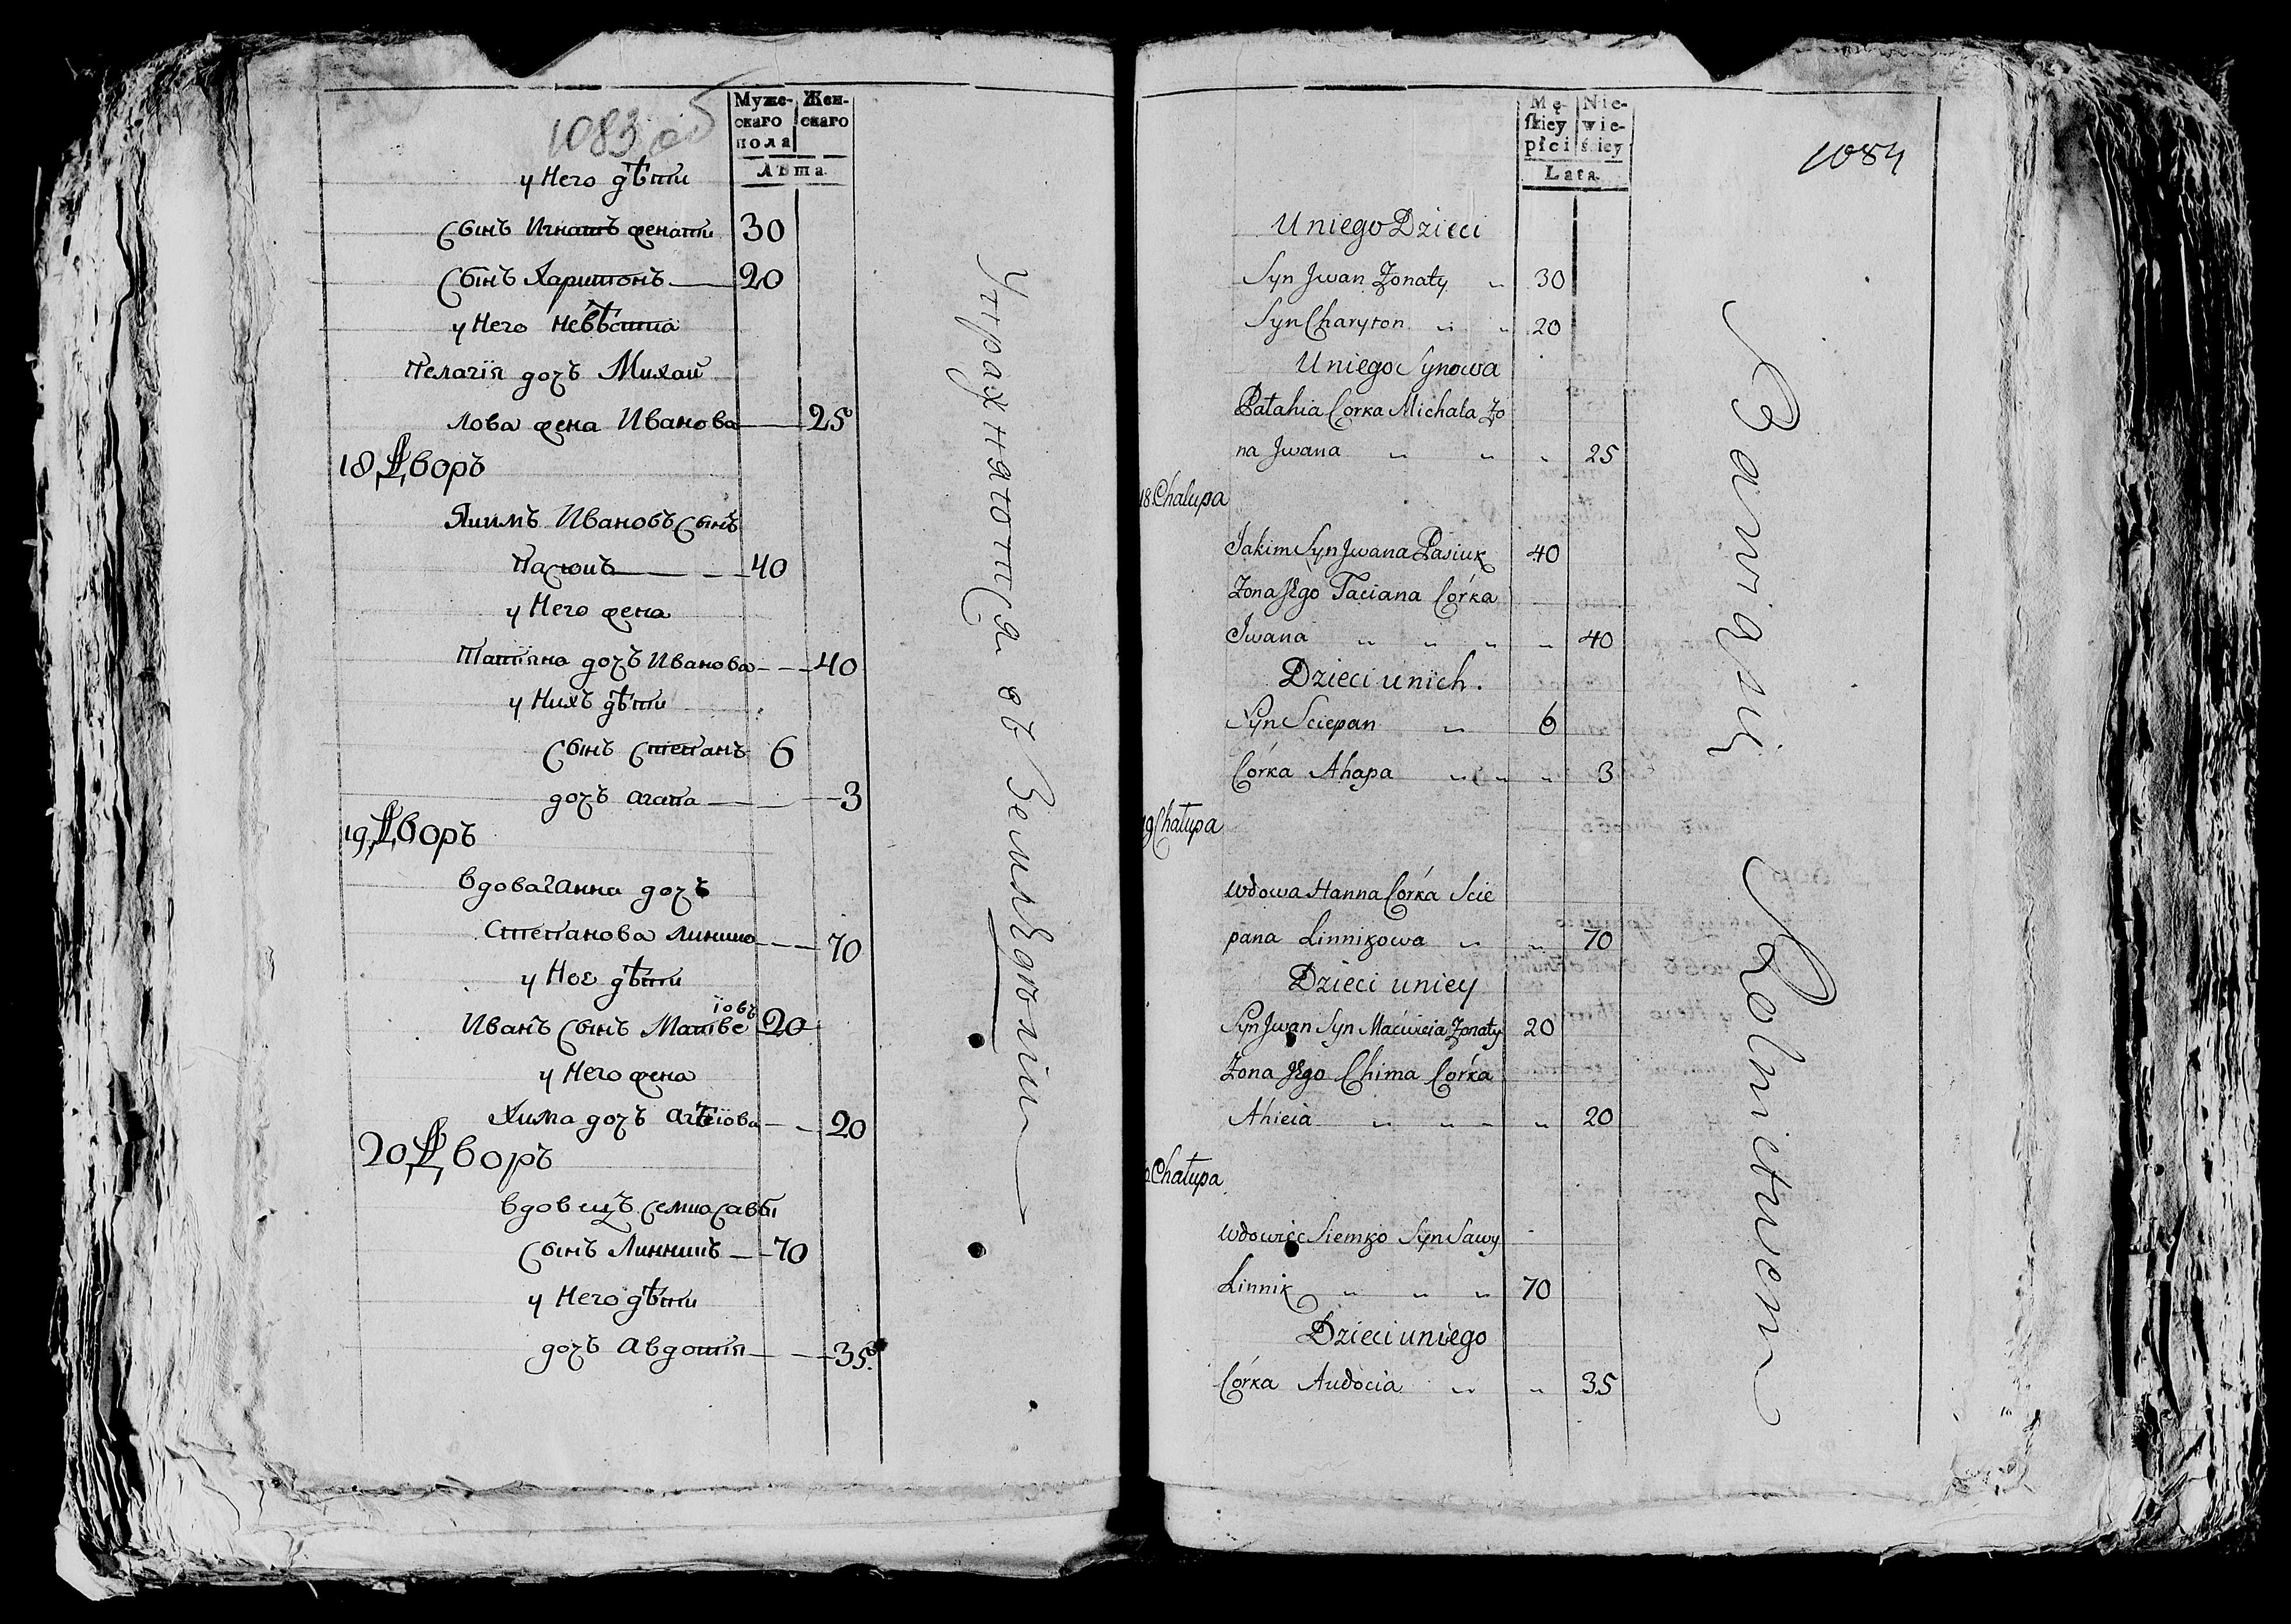 1083 об
Муже- Жен-
скаго скаго
пола
Лѣта
у Него дѣти
Сынъ Игнатъ женати 30
Сынъ Харитонъ 20
у Него Невѣстка
Пелагія дочъ Михай
лова жена Иванова 25
18 Дворъ
Якимъ Ивановъ Сынъ
Пасюкъ 40
у Него жена
Татіяна дочъ Иванова 40
у Нихъ дѣти
Сынъ Степанъ 6
дочъ Агапа 3
19 Дворъ
вдова Ганна дочъ
Степанова 70
у Нее дѣти
Иванъ Сынъ Матве 20
іовъ
у Него жена
Хима дочъ Агѣіова 20
20 Дворъ
вдовецъ Семко Савы
Сынъ Линникъ 70
у Него дѣти
дочъ Авдотія 35
Упражняются въ Земледѣліи
Mę- Nie-
skiey wie-
płci ściey
Lata
1084
U niego Dzieci
Syn Jwan Żonaty " 30
Syn Charyton " " 20
U niego Synowa
Pałahia Corka Michala Żo
na Jwana " " " 25
18 Chalupa
Jakim Syn Jwana Pasiuk 40
Żona Jego Taciana Córka
Jwana " " " " 40
Dzieci u nich.
Syn Sciepan " 6
Córka Ahapa " " " 3
19 Chałupa
Wdowa Hanna Córka Scie
pana Linnikowa " " 70
Dzieci u niey
Syn Jwan Syn Maćwieia Żonaty 20
Żona Jego Chima Córka
Ahieia " " " " 20
Chałupa
Wdowiec Siemko Syn Sawy
Linnik " " " 70
Dzieci u niego
Córka Audocia " " 35
Bawią się Rolnictwem